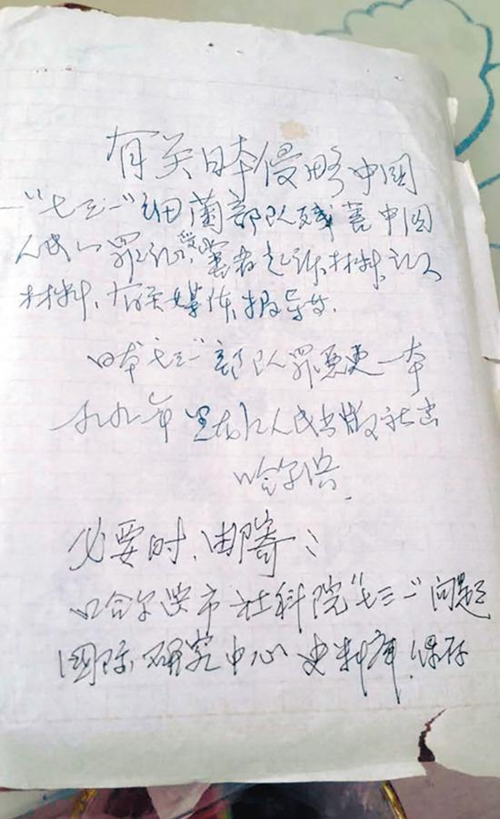 有关日本侵略中国
一"七三一"细菌部队残害中国
人民的罪证,受害者起诉材料,证人
材料、有关媒体报导等.
日本七三一部队罪恶史一本
九九年 黑龙江人民出版社出
哈尔滨.
必要时,邮寄:
哈尔滨市社科院"七三一"问题
国际研究中心史料库.保存